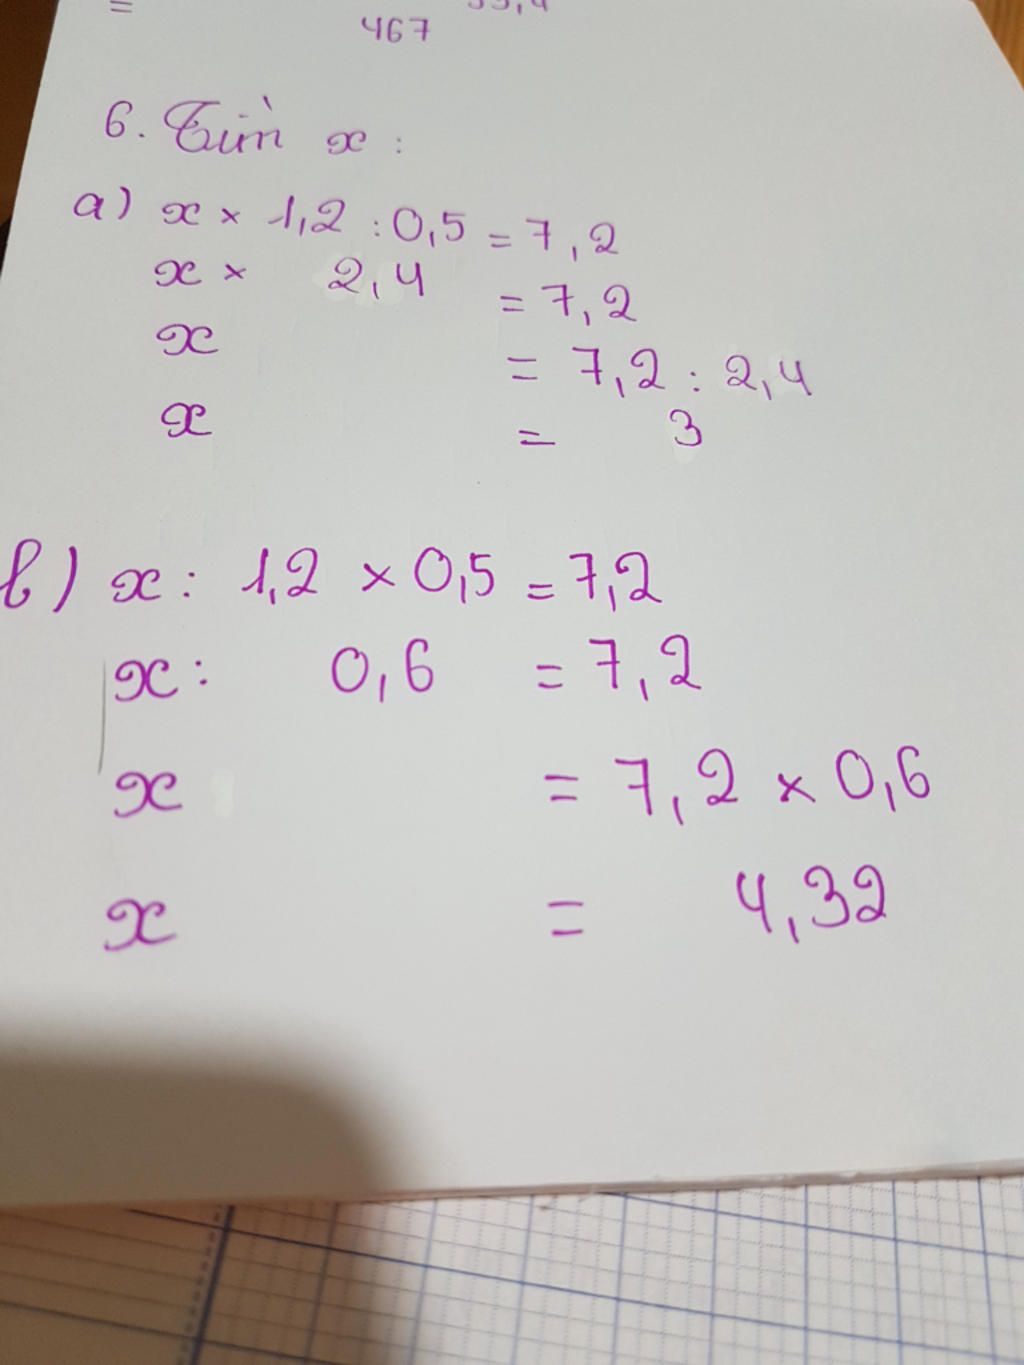 =
467
6. Tìm x :
a) x × 1,2 : 0,5 = 7,2
x × 2,4 = 7,2
x = 7,2 : 2,4
x = 3
b) x : 1,2 × 0,5 = 7,2
x : 0,6 = 7,2
x = 7,2 × 0,6
x = 4,32